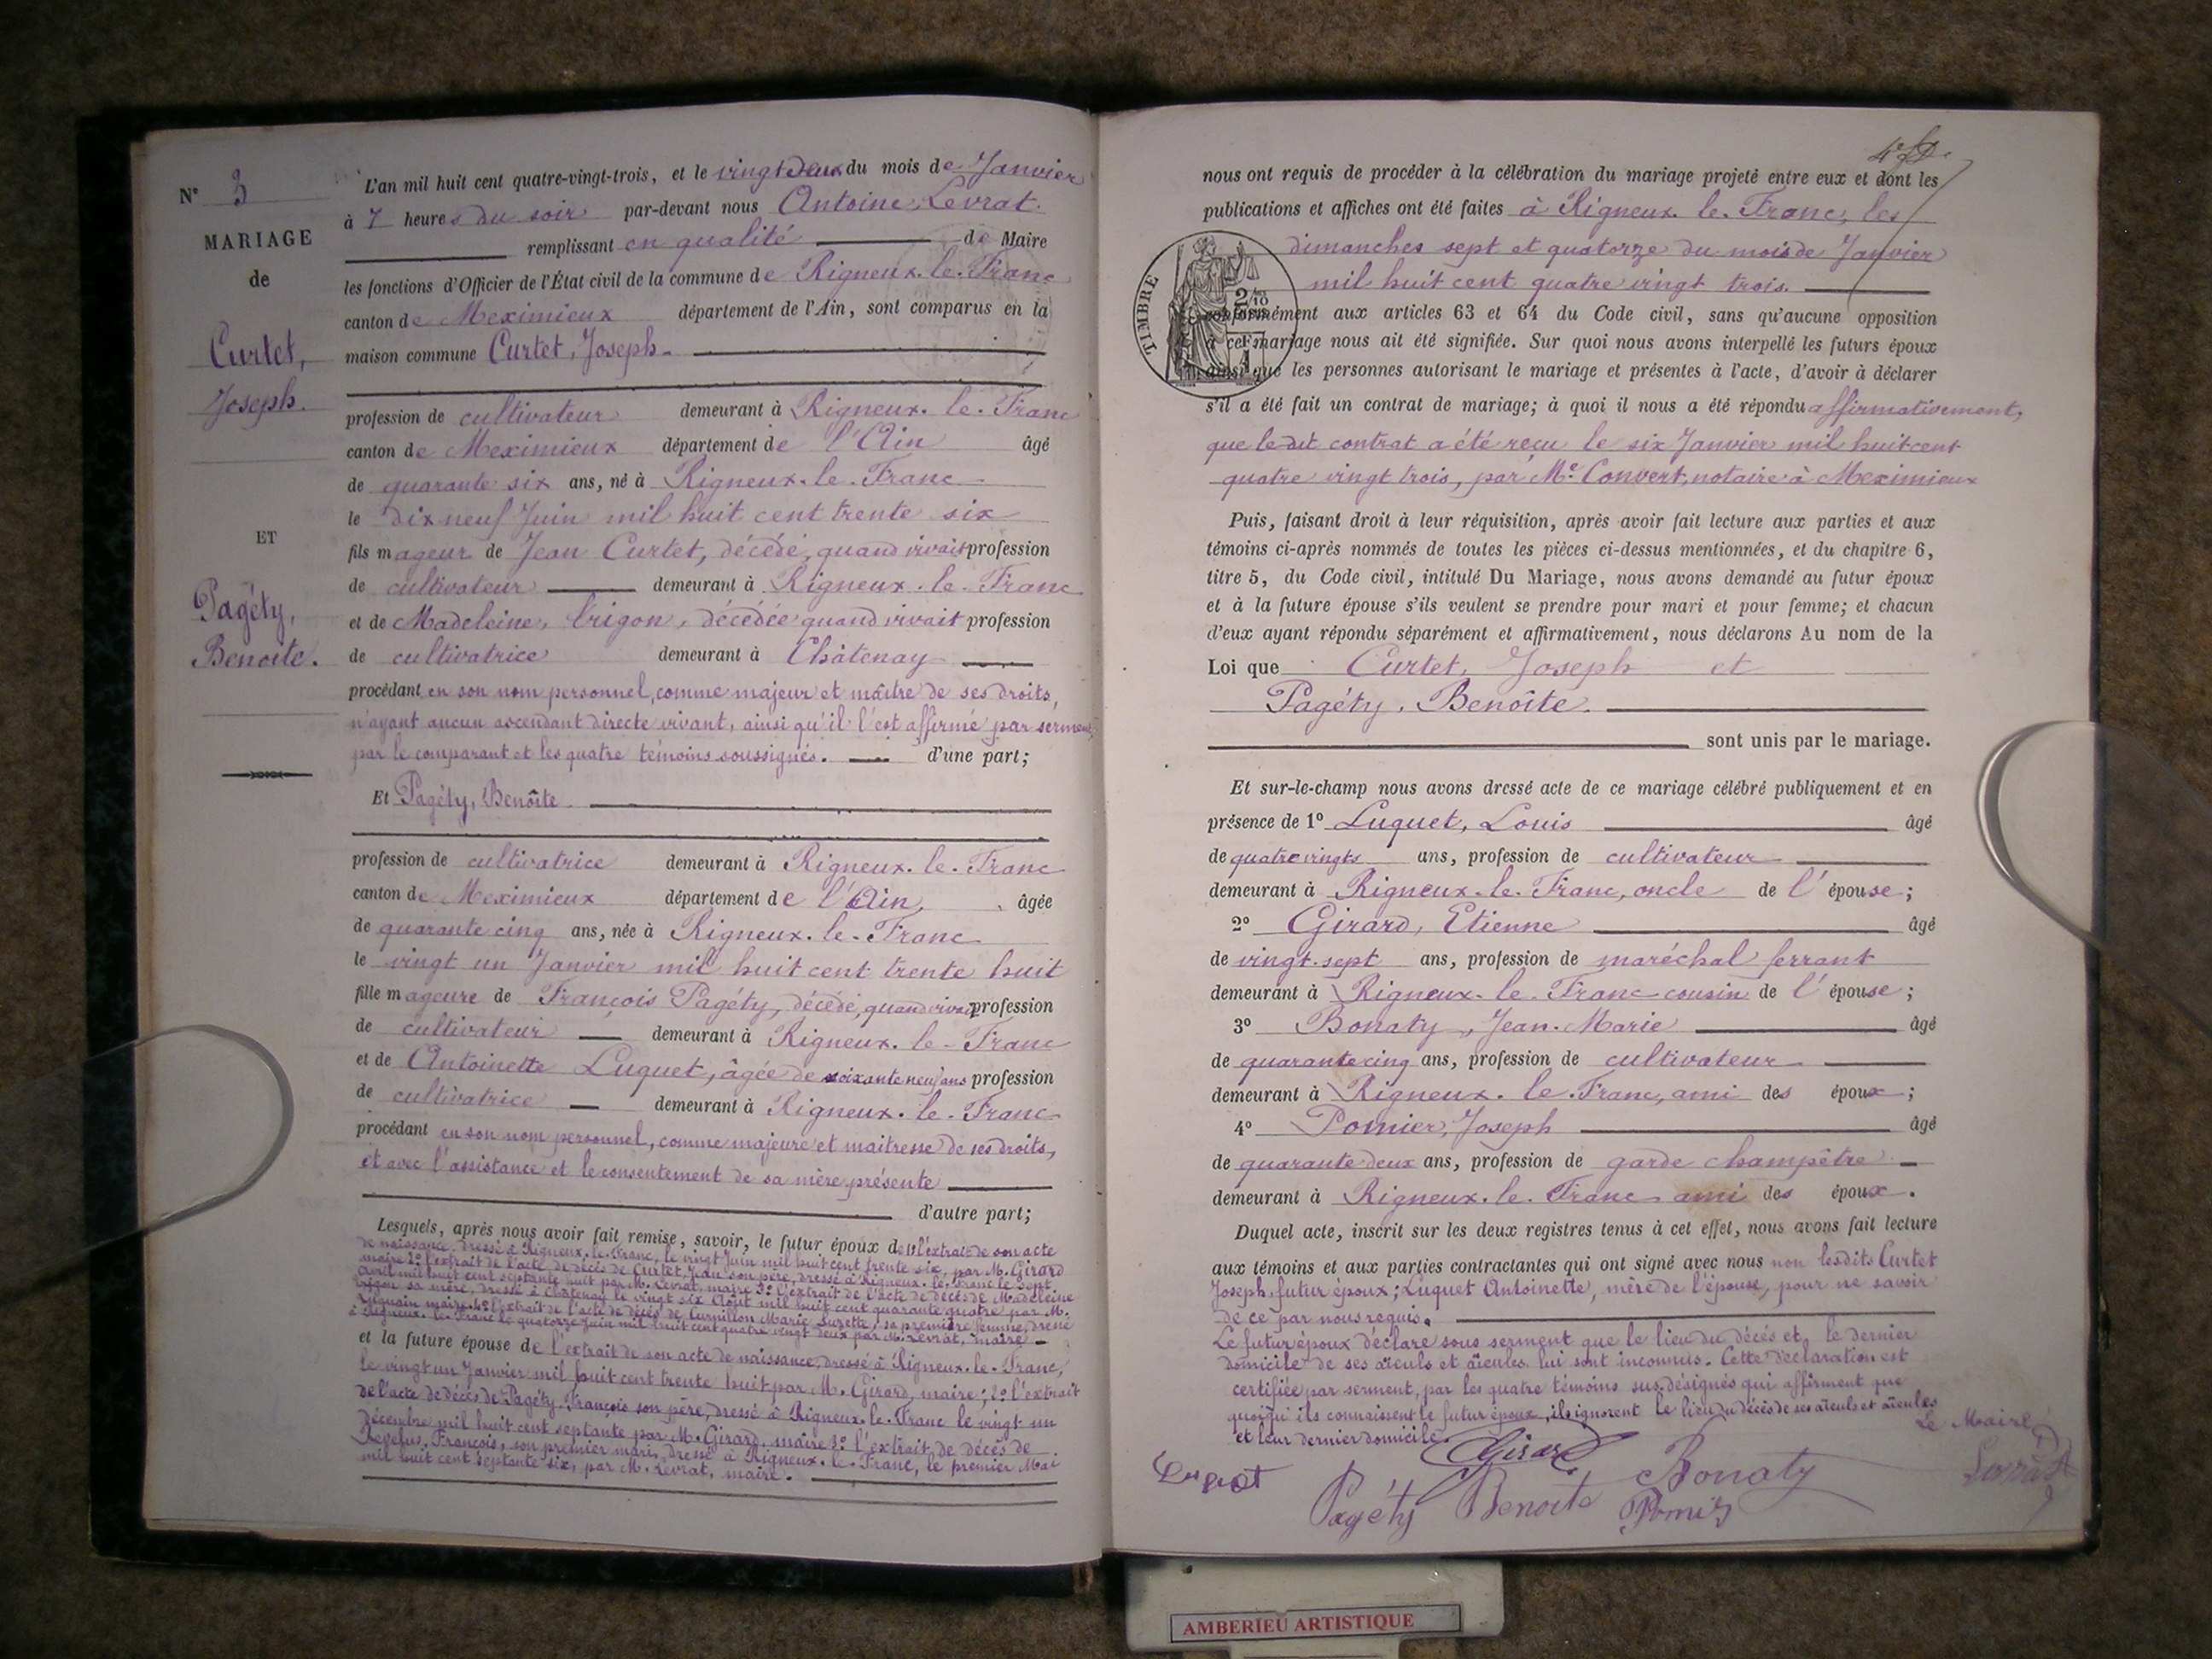 N° 3
MARIAGE
de
Curtet,
Joseph.
ET
Pagéty,
Benoite.
L'an mil huit cent quatre-vingt-trois, et le vingt deux du mois de Janvier
à 7 heures du soir par-devant nous Antoine, Levrat.
remplissant en qualité de Maire
les fonctions d'Officier de l'État civil de la commune de Rigneux. le. Franc
canton de Meximieux département de l'Ain, sont comparus en la
maison commune Curtet, Joseph.
profession de cultivateur demeurant à Rigneux. le. Franc
canton de Meximieux département de l'Ain âgé
de quarante six ans, né à Rigneux. le. Franc
le dix neuf Juin mil huit cent trente six
fils mageur de Jean Curtet, décédé, quand vivait profession
de cultivateur demeurant à Rigneux. le. Franc
et de Madeleine, Brigon, décédée quand vivait profession
de cultivatrice demeurant à Châtenay
procédant en son nom personnel, comme majeur et maître de ses droits,
n'ayant aucun ascendant directe vivant, ainsi qu'il l'est affirmé par serment,
par le comparant et les quatre témoins soussignés. d'une part;
Et Pagéty, Benôite
profession de cultivatrice demeurant à Rigneux. le. Franc
canton de Meximieux département de l'Ain, âgée
de quarante cinq ans, née à Rigneux. le. Franc
le vingt un Janvier mil huit cent trente huit
fille mageure de François Pagéty, décédé, quand vivait profession
de cultivateur demeurant à Rigneux. le. Franc
et de Antoinette Luquet, âgée de soixante neuf ans profession
de cultivatrice demeurant à Rigneux. le. Franc
procédant en son nom personnel, comme majeure et maitresse de ses droits,
et avec l'assistance et le consentement de sa mère présente
d'autre part;
Lesquels, après nous avoir fait remise, savoir, le futur époux de 1° l'extrait de son acte
de naissance, dressé à Rigneux. le. Franc, le vingt Juin mil huit cent trente six, par M. Girard
maire 2° l'extrait de l'acte de décès de Curtet, Jean son père, dressé à Rigneux. le. Franc le sept
Avril mil huit cent septante huit par M. Levrat, maire 3° l'extrait de l'acte de décès de Madeleine
Brigon sa mère, dressé à Châtenay le vingt six Août mil huit cent quarante quatre par M.
maire. 4° l'extrait de l'acte de décès de Curnillon Marie Suzette, sa première femme, dressé
à Rigneux. le. Franc le quatorze Juin mil huit cent quatre vingt deux par M. Levrat, maire
et la future épouse de l'extrait de son acte de naissance, dressé à Rigneux. le. Franc,
le vingt un Janvier mil huit cent trente huit par M. Girard, maire; 2° l'extrait
de l'acte de décès de Pagéty François son père, dressé à Rigneux. le. Franc le vingt un
Décembre mil huit cent septante par M. Girard, maire 3° l'extrait de décès de
François, son premier mari, dressé à Rigneux. le. Franc, le premier Mai
mil huit cent septante six, par M. Levrat, maire.
nous ont requis de procéder à la célébration du mariage projeté entre eux et dont les
publications et affiches ont été faites à Rigneux. le. Franc, les
dimanches sept et quatorze du mois de Janvier
mil huit cent quatre vingt trois.
TIMBRE
2/10
conformément aux articles 63 et 64 du Code civil, sans qu'aucune opposition
à ce mariage nous ait été signifiée. Sur quoi nous avons interpellé les futurs époux
ainsi que les personnes autorisant le mariage et présentes à l'acte, d'avoir à déclarer
s'il a été fait un contrat de mariage; à quoi il nous a été répondu affirmativement,
que le dit contrat a été reçu le six Janvier mil huit cent
quatre vingt trois, par Me. Convert, notaire à Meximieux
Puis, faisant droit à leur réquisition, après avoir fait lecture aux parties et aux
témoins ci-après nommés de toutes les pièces ci-dessus mentionnées, et du chapitre 6,
titre 5, du Code civil, intitulé Du Mariage, nous avons demandé au futur époux
et à la future épouse s'ils veulent se prendre pour mari et pour femme; et chacun
d'eux ayant répondu séparément et affirmativement, nous déclarons Au nom de la
Loi que Curtet, Joseph et
Pagéty, Benoîte.
sont unis par le mariage.
Et sur-le-champ nous avons dressé acte de ce mariage célébré publiquement et en
présence de 1° Luquet, Louis âgé
de quatre vingts ans, profession de cultivateur
demeurant à Rigneux. le. Franc, oncle de l'épouse;
2° Girard, Etienne âgé
de vingt. sept ans, profession de maréchal ferrant
demeurant à Rigneux. le. Franc cousin de l'épouse;
3° Bonaty, Jean. Marie âgé
de quarante cinq ans, profession de cultivateur
demeurant à Rigneux. le. Franc, ami des époux;
4° Pomier, Joseph âgé
de quarante deux ans, profession de garde champêtre
demeurant à Rigneux. le. Franc ami des époux.
Duquel acte, inscrit sur les deux registres tenus à cet effet, nous avons fait lecture
aux témoins et aux parties contractantes qui ont signé avec nous non lesdits Curtet
Joseph, futur époux; Luquet Antoinette, mère de l'épouse, pour ne savoir
de ce par nous requis.
Le futur époux déclare sous serment que le lieu du décés et le dernier
domicile de ses aïeuls et aïeules, lui sont inconnus. Cette déclaration est
certifiée par serment, par les quatre témoins sus. désignés qui affirment que
quoiqu'ils connaissent le futur époux, ils ignorent le lieu du décès de ses aïeuls et aïeules
et leur dernier domicile.
Le Maire
Girard
Bonaty
Levrat
Pagéty Benoite
AMBERIEU ARTISTIQUE